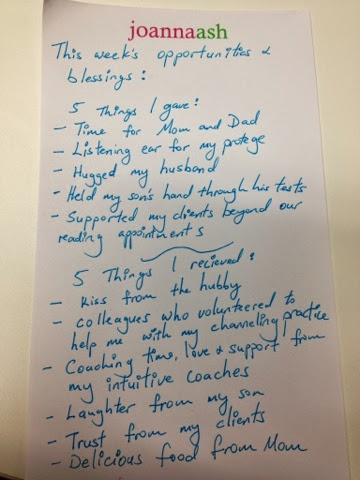 joannaash
This week's opportunities &
blessings:
5 Things I gave:
- Time for Mom and Dad
- Listening ear for my protege
- Hugged my husband
- Held my son's hand through his tests
- Supported my clients beyond our
reading appointments
5 Things I recieved:
- Kiss from the hubby
- colleagues who volunteered to
help me with my channeling practice
- Coaching time, love & support from
my intuitive coaches
- Laughter from my son
- Trust from my clients
- Delicious food from Mom